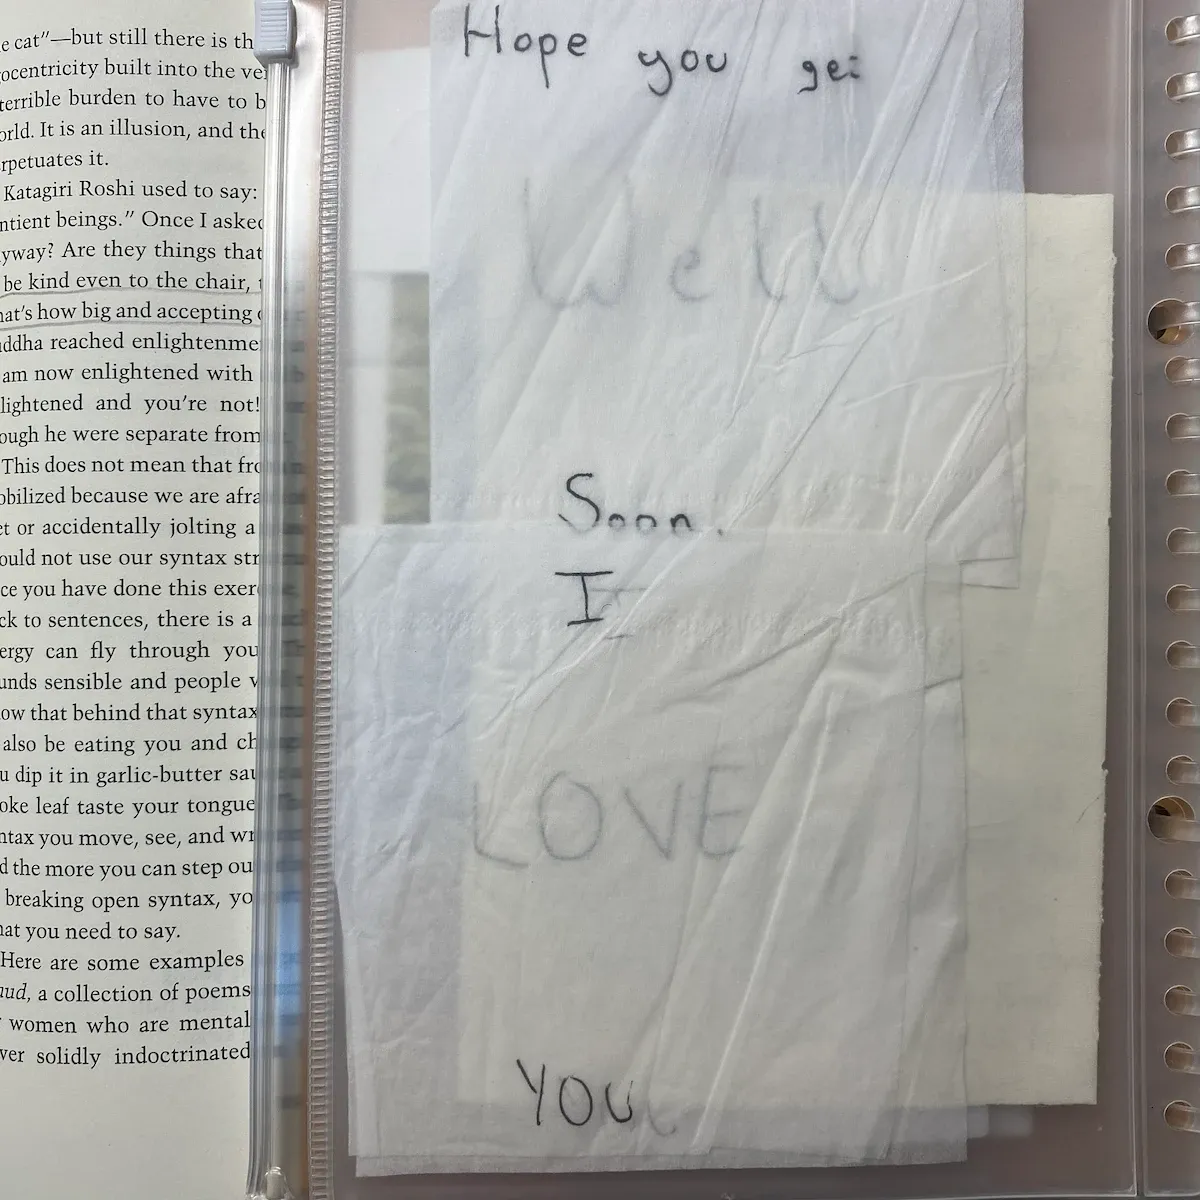 cat"—but still there is
ocentricity built into the
terrible burden to have to
orld. It is an illusion, and
rpetuates it.
Katagiri Roshi used to say:
ntient beings." Once I asked
yway? Are they things that
be kind even to the chair,
hat's how big and accepting
uddha reached enlightenme
am now enlightened with
lightened and you're not!
ough he were separate from
This does not mean that
obilized because we are
et or accidentally jolting a
ould not use our syntax
ce you have done this
ck to sentences, there is a
ergy can fly through you
unds sensible and people
ow that behind that syntax
also be eating you and
u dip it in garlic-butter
oke leaf taste your tongue
ntax you move, see, and
d the more you can step
breaking open syntax,
hat you need to say.
Here are some examples
aud, a collection of poems
women who are mental
ver solidly indoctrinated
Hope you get
Well
Soon.
I
LOVE
YOU